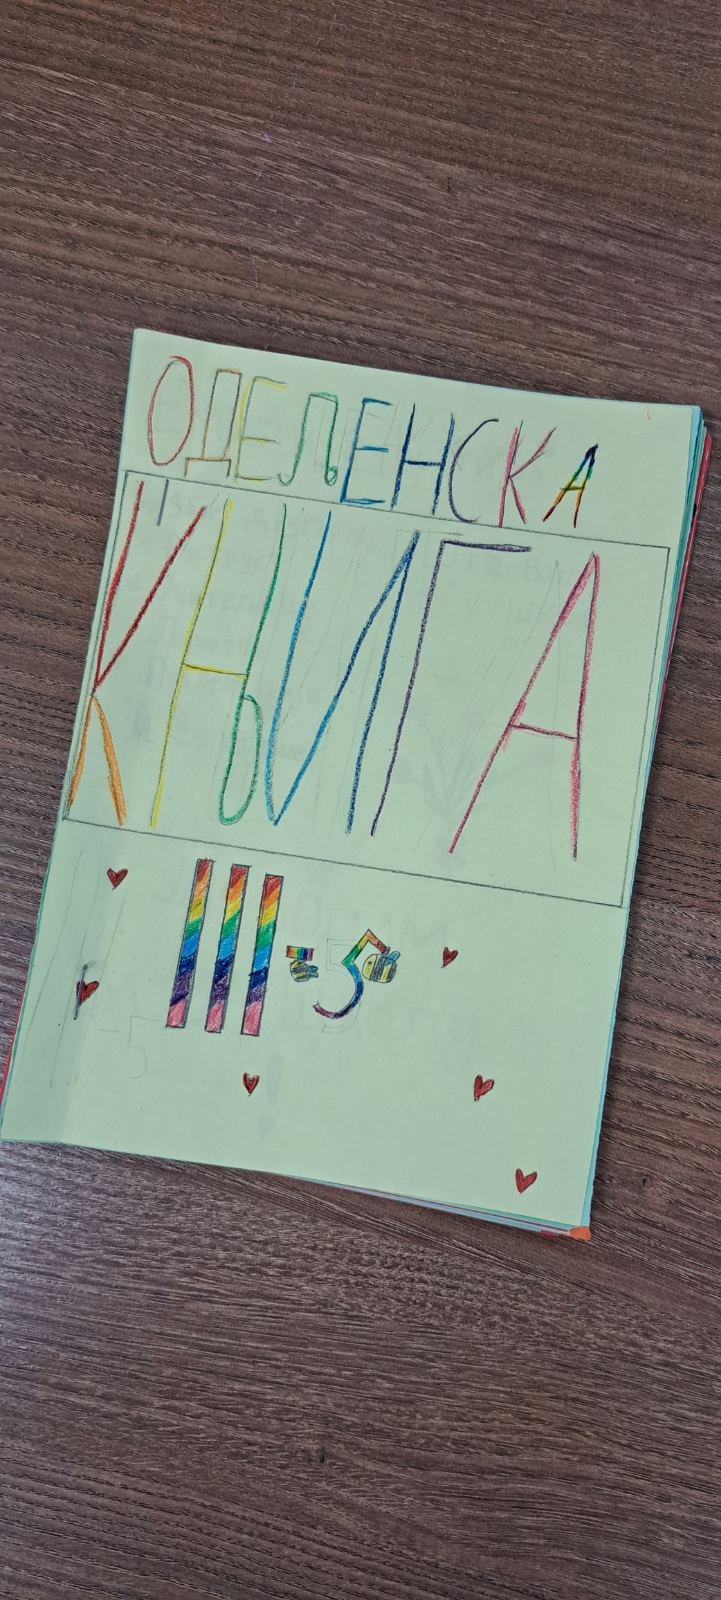 ОДЕЛЕНСКА
КЊИГА
III-5